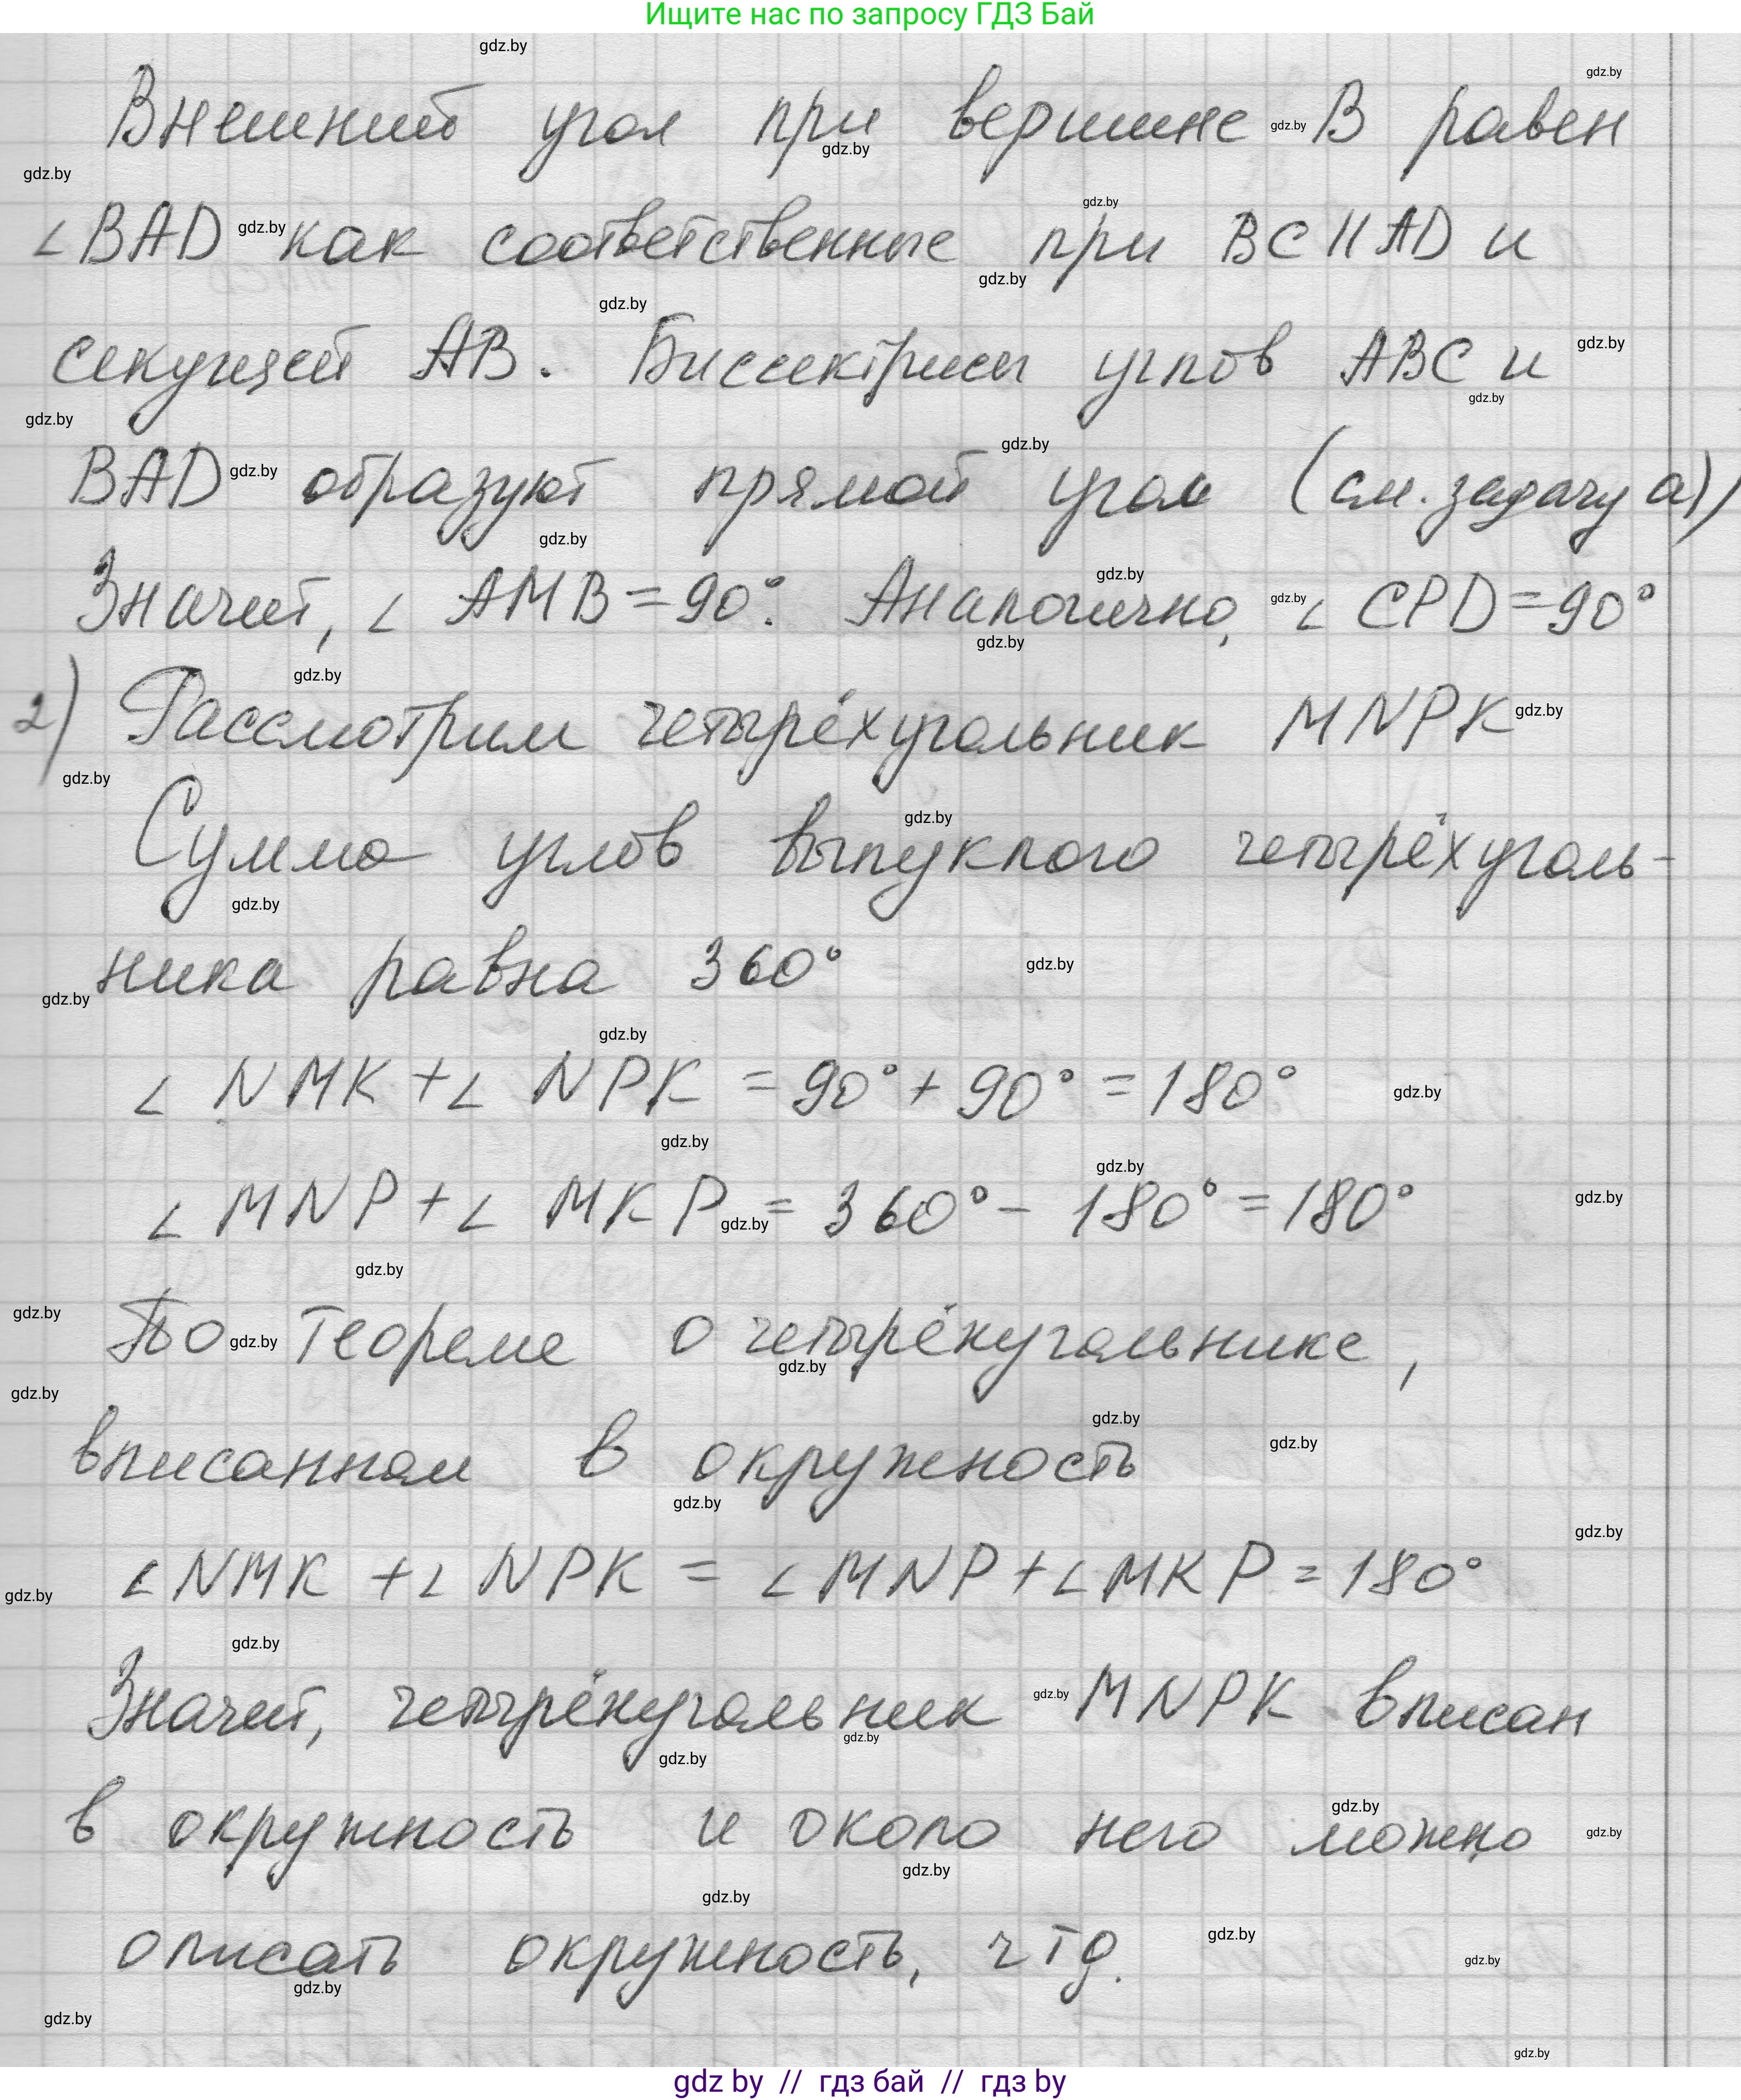 Ищите нас по запросу ГДЗ Бай
Внешний угол при вершине В равен
∠BAD как соответственные при BC || AD и
секущей AB. Биссектрисы углов ABC и
BAD образуют прямой угол (см. задачу а))
Значит, ∠ AMB = 90°. Аналогично, ∠ CPD = 90°
2) Рассмотрим четырёхугольник MNPK
Сумма углов выпуклого четырёхуголь-
ника равна 360°
∠ NMK + ∠ NPK = 90° + 90° = 180°
∠ MNP + ∠ MKP = 360° - 180° = 180°
По теореме о четырёхугольнике,
вписанном в окружность
∠ NMK + ∠ NPK = ∠ MNP + ∠ MKP = 180°
Значит, четырёхугольник MNPK вписан
в окружность и около него можно
описать окружность, чтд.
gdz by // гдз бай // гдз by